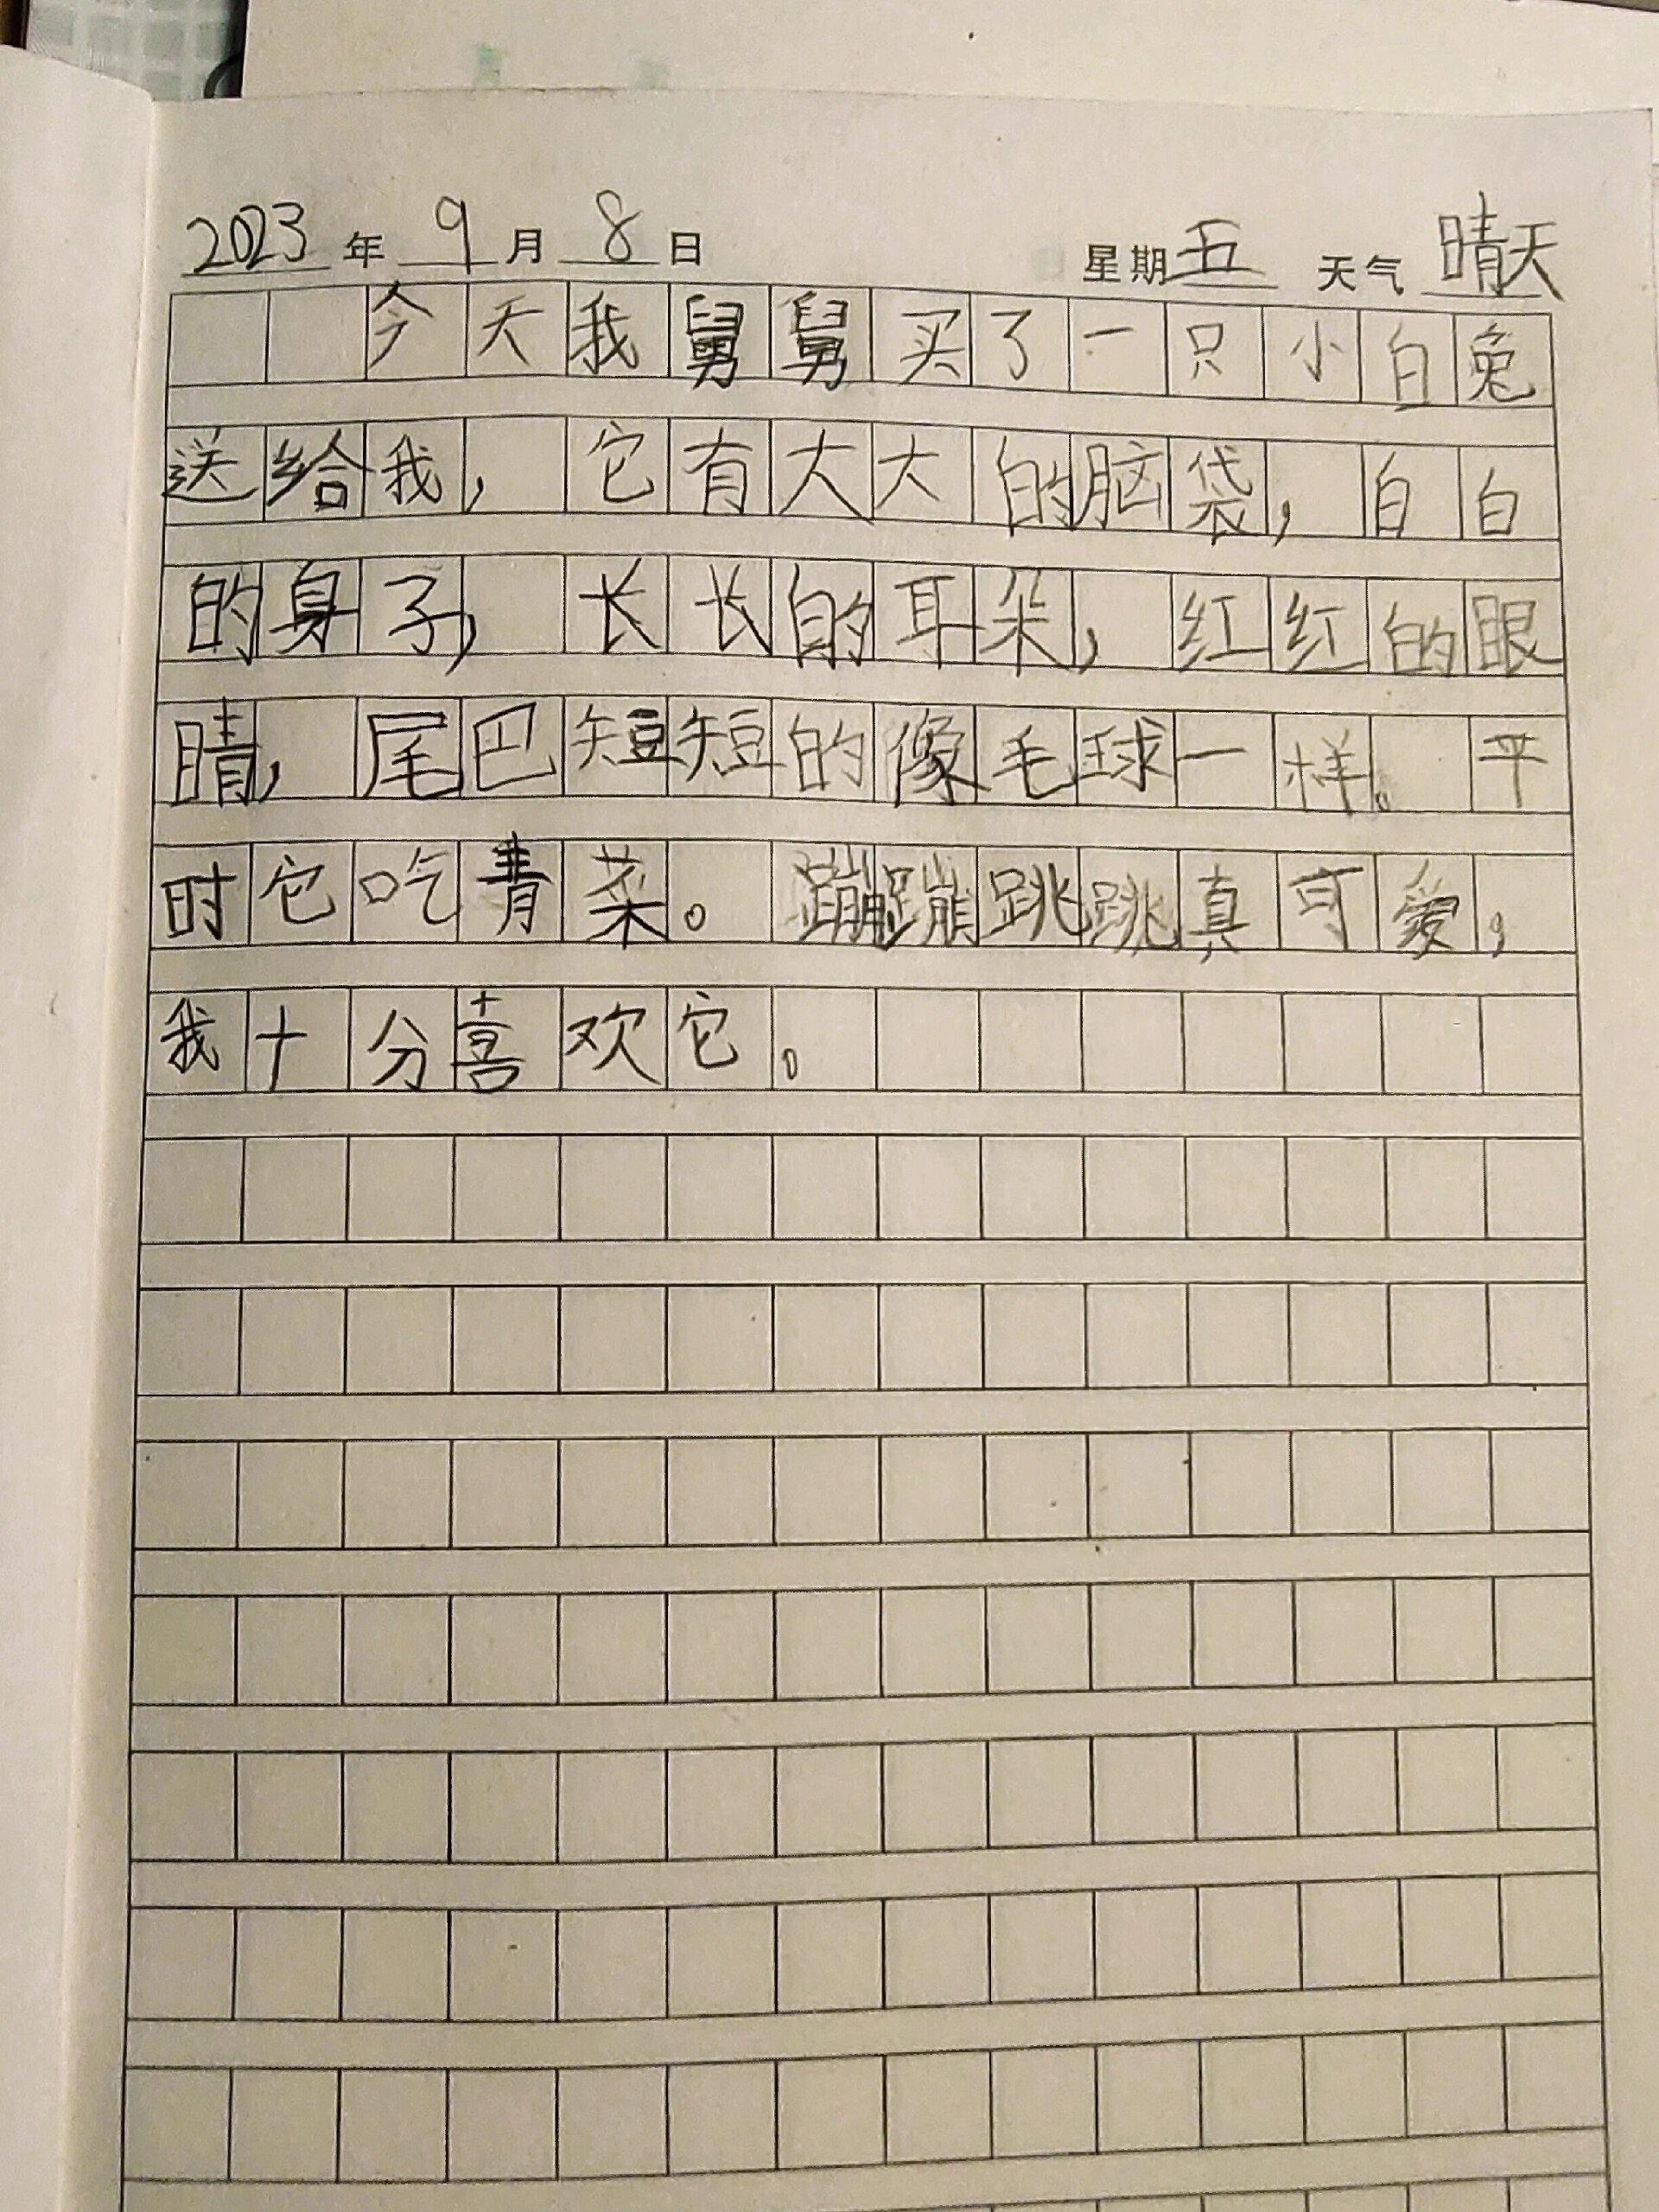 2023年9月8日 星期五 天气晴天
今天我舅舅买了一只小白兔
送给我，它有大大的脑袋，白白
的身子，长长的耳朵，红红的眼
睛，尾巴短短的像毛球一样。平
时它吃青菜。蹦蹦跳跳真可爱，
我十分喜欢它。